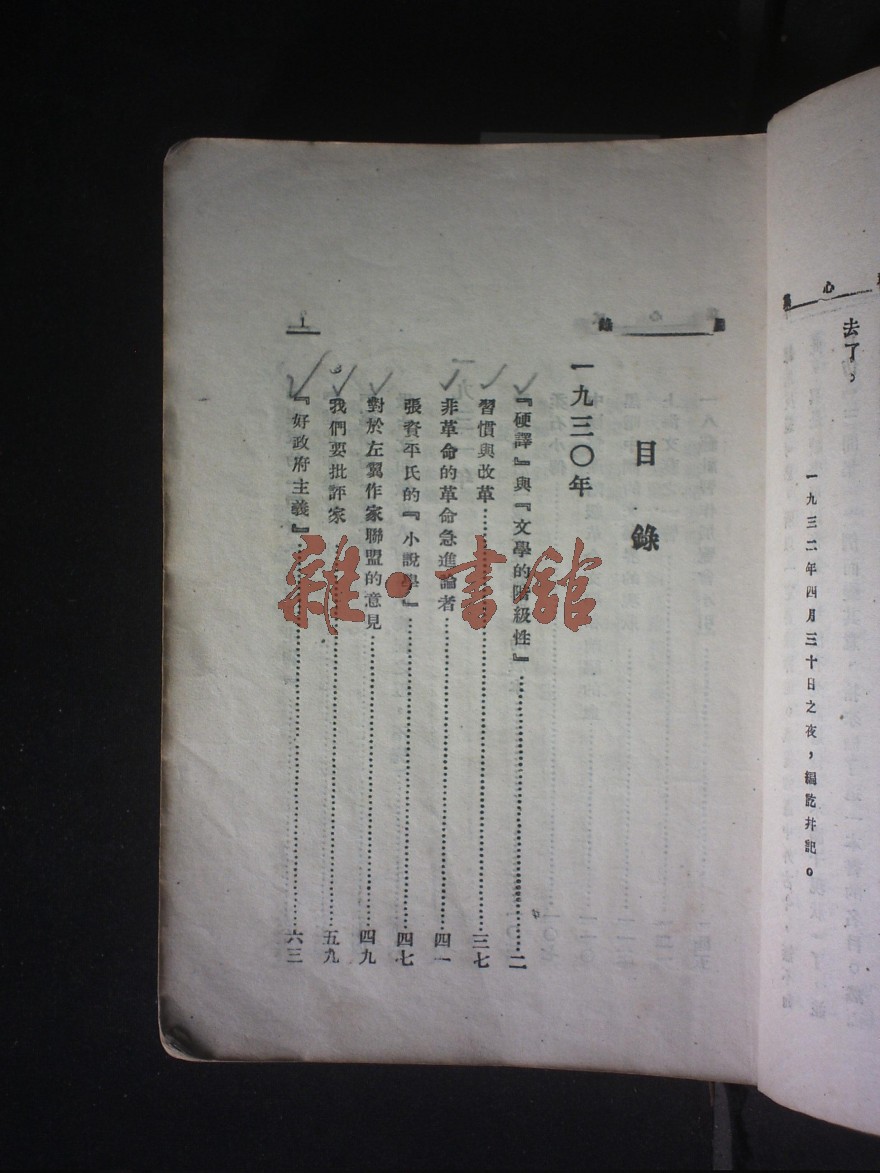 去了。
一九三二年四月三十日之夜，編訖幷記。
心
錄
目錄
一九三〇年
『硬譯』與『文學的階級性』……二
習慣與改革……三七
非革命的革命急進論者……四一
張資平氏的『小說學』……四七
對於左翼作家聯盟的意見……四九
我們要批評家……五九
『好政府主義』……六三
1
雜·書館